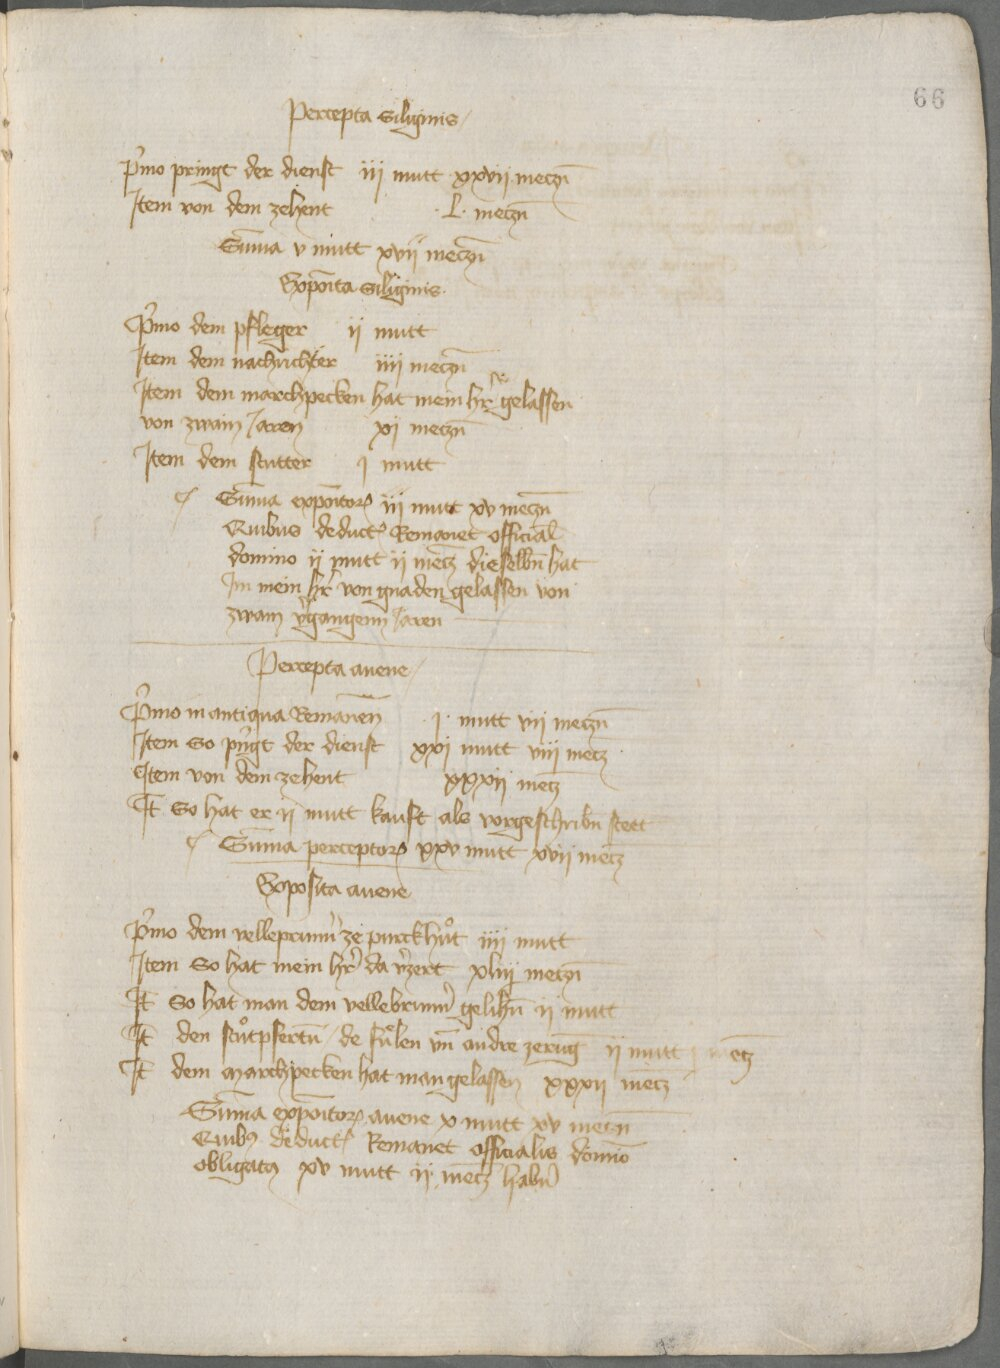 66
Percepta Siliginis
P'mo pringt der dienst iij mutt xxvij meczn̄
Item von dem zehent .L. meczn̄
Sum̄a v mutt xvij meczn̄
Expoīta Siliginis
P'mo dem pfleger ij mutt
Item dem nachrichter iiij meczn̄
Item dem marchpecken hat mein hr̄ gelassen
von zwain Jaren xj meczn̄
Item dem stutter j mutt
Sum̄a expoītor' iij mutt xv meczn̄
Quibus deduct' Remanet official'
domino ij mutt ij mecz dieselbn̄ hat
Im mein hr̄ von gnaden gelassen von
zwain v'gangenn Jaren
Percepta avene
P'mo in antiqua Remanen̄ .j. mutt viij meczn̄
Item So pringt der dienst xxj mutt viij mecz
Item von dem zehent xxxij mecz
It̄ So hat er ij mutt kauft als vorgeschribn̄ stett
Sum̄a perceptor' xxv mutt xvij mecz
Exposita avene
P'mo dem velleprunn' ze purckhůt iiij mutt
Item So hat mein hr̄ da v'zert xliij meczn̄
It̄ So hat man dem vellebrunn' gelihn̄ ij mutt
It̄ den stůtpfertn̄ / de fůlen vn̄ andre zeruḡ ij mutt j mecz
It̄ dem Marchpecken hat man gelassen xxxij mecz
Sum̄a expoītor' avene x mutt xv meczn̄
Quib' deduct' Remanet officialis domīo
obligatus xv mutt ij mecz habn̄